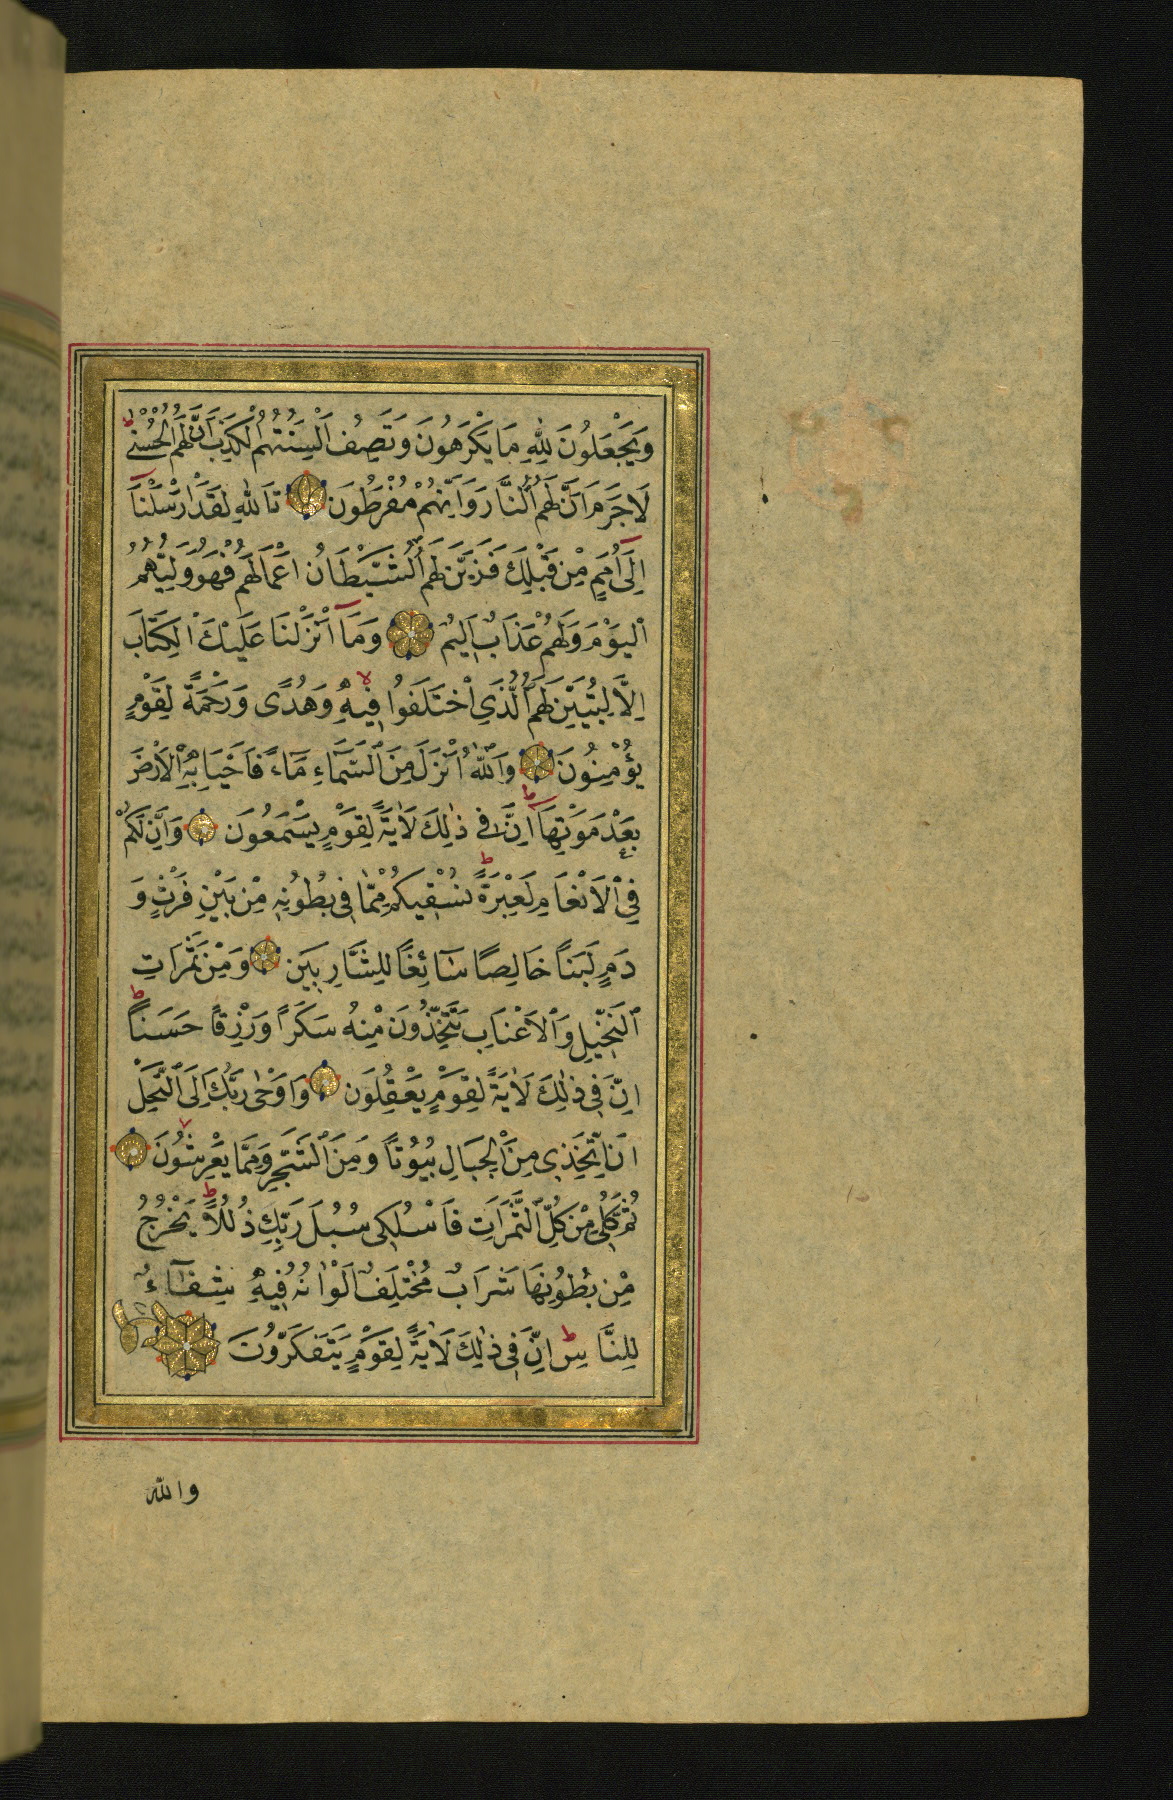 وَيَجْعَلُونَ لِلّٰهِ مَا يَكْرَهُونَ وَتَصِفُ اَلْسِنَتُهُمُ الْكَذِبَ اَنَّ لَهُمُ الْحُسْنٰى ط
لَا جَرَمَ اَنَّ لَهُمُ النَّارَ وَاَنَّهُمْ مُفْرَطُونَ تَاللّٰهِ لَقَدْ اَرْسَلْنَٓا
اِلٰٓى اُمَمٍ مِنْ قَبْلِكَ فَزَيَّنَ لَهُمُ الشَّيْطَانُ اَعْمَالَهُمْ فَهُوَ وَلِيُّهُمُ
الْيَوْمَ وَلَهُمْ عَذَابٌ اَلِيمٌ وَمَٓا اَنْزَلْنَا عَلَيْكَ الْكِتَابَ
اِلَّا لِتُبَيِّنَ لَهُمُ الَّذِي اخْتَلَفُوا فِيهِ لا وَهُدًى وَرَحْمَةً لِقَوْمٍ
يُؤْمِنُونَ وَاللّٰهُ اَنْزَلَ مِنَ السَّمَٓاءِ مَٓاءً فَاَحْيَا بِهِ الْاَرْضَ
بَعْدَ مَوْتِهَا ط اِنَّ فِي ذٰلِكَ لَاٰيَةً لِقَوْمٍ يَسْمَعُونَ وَاِنَّ لَكُمْ
فِي الْاَنْعَامِ لَعِبْرَةً ط نُسْقِيكُمْ مِمَّا فِي بُطُونِهِ مِنْ بَيْنِ فَرْثٍ وَ
دَمٍ لَبَنًا خَالِصًا سَٓائِغًا لِلشَّارِبِينَ وَمِنْ ثَمَرَاتِ
النَّخِيلِ وَالْاَعْنَابِ تَتَّخِذُونَ مِنْهُ سَكَرًا وَرِزْقًا حَسَنًا ط
اِنَّ فِي ذٰلِكَ لَاٰيَةً لِقَوْمٍ يَعْقِلُونَ وَاَوْحٰى رَبُّكَ اِلَى النَّحْلِ
اَنِ اتَّخِذِي مِنَ الْجِبَالِ بُيُوتًا وَمِنَ الشَّجَرِ وَمِمَّا يَعْرِشُونَ
ثُمَّ كُلِي مِنْ كُلِّ الثَّمَرَاتِ فَاسْلُكِي سُبُلَ رَبِّكِ ذُلُلًا ط يَخْرُجُ
مِنْ بُطُونِهَا شَرَابٌ مُخْتَلِفٌ اَلْوَانُهُ فِيهِ شِفَٓاءٌ
لِلنَّاسِ ط اِنَّ فِي ذٰلِكَ لَاٰيَةً لِقَوْمٍ يَتَفَكَّرُونَ
والله